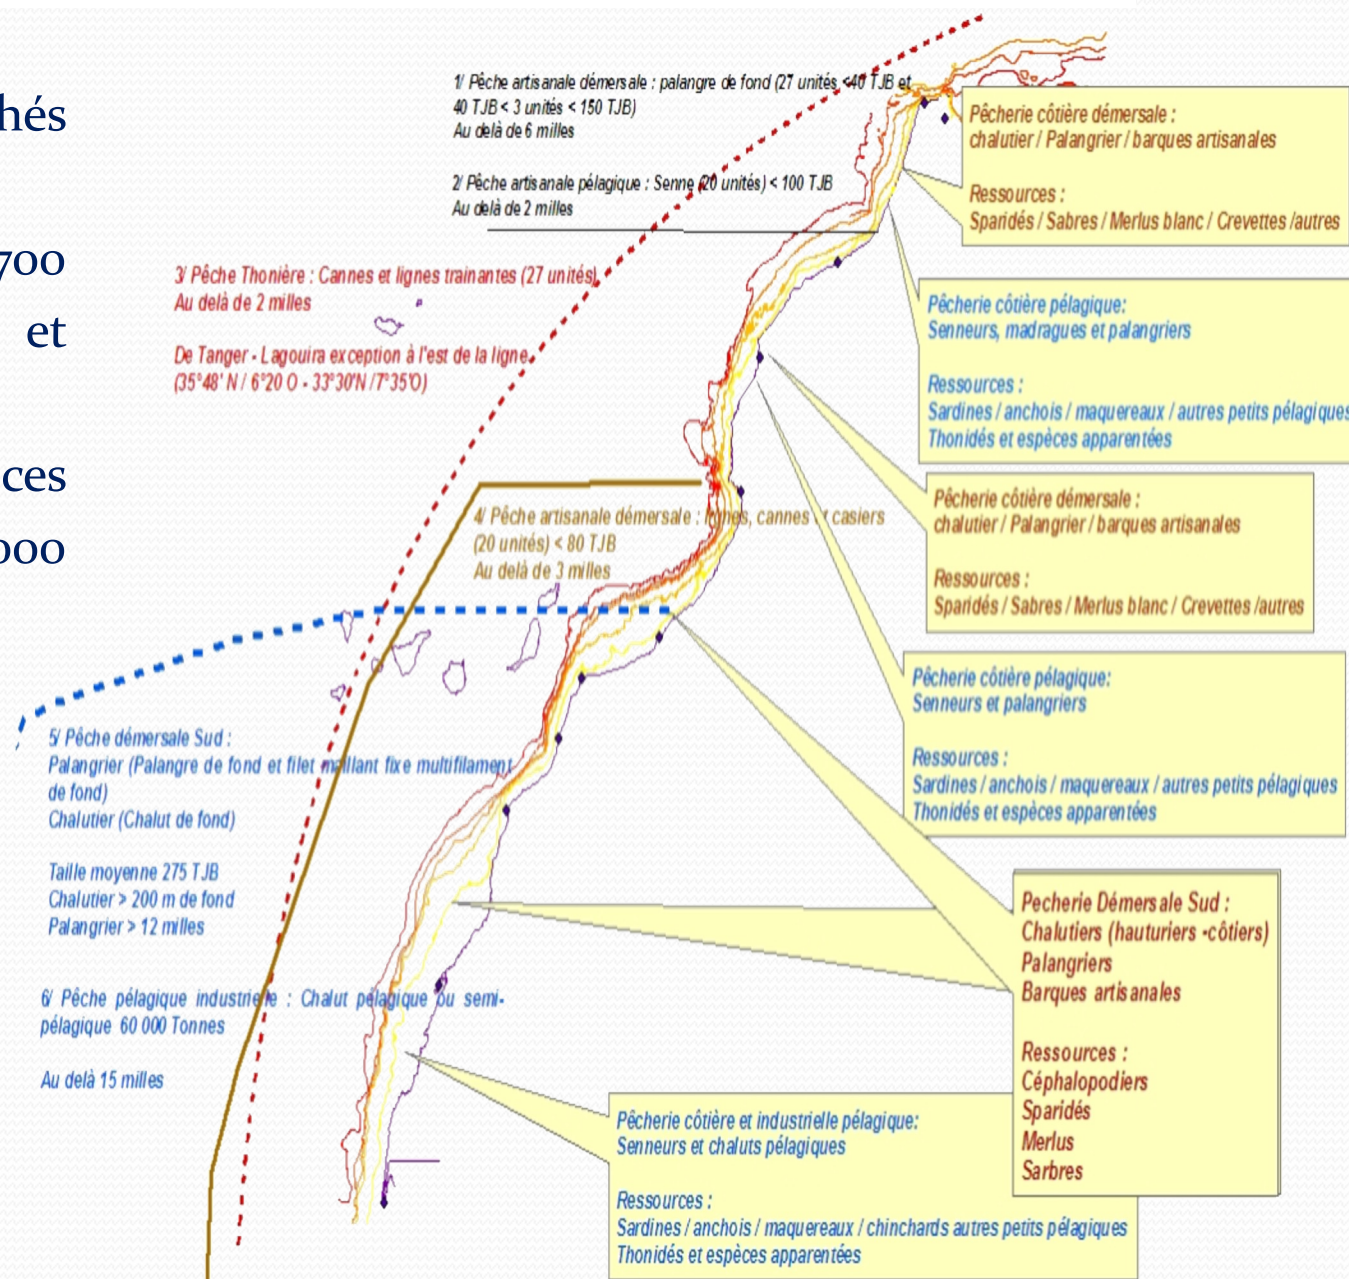 hés
700
et
ces
000
1/ Pêche artisanale démersale : palangre de fond (27 unités <40 TJB et
40 TJB < 3 unités < 150 TJB)
Au delà de 6 milles
2/ Pêche artisanale pélagique : Senne (20 unités) < 100 TJB
Au delà de 2 milles
3/ Pêche Thonière : Cannes et lignes trainantes (27 unités)
Au delà de 2 milles
De Tanger - Lagouira exception à l'est de la ligne
(35°48' N / 6°20 O - 33°30'N /7°35'O)
4/ Pêche artisanale démersale : lignes, cannes et casiers
(20 unités) < 80 TJB
Au delà de 3 milles
5/ Pêche démersale Sud :
Palangrier (Palangre de fond et filet maillant fixe multifilament
de fond)
Chalutier (Chalut de fond)
Taille moyenne 275 TJB
Chalutier > 200 m de fond
Palangrier > 12 milles
6/ Pêche pélagique industrielle : Chalut pélagique ou semi-
pélagique 60 000 Tonnes
Au delà 15 milles
Pêcherie côtière démersale :
chalutier / Palangrier / barques artisanales
Ressources :
Sparidés / Sabres / Merlus blanc / Crevettes /autres
Pêcherie côtière pélagique:
Senneurs, madragues et palangriers
Ressources :
Sardines / anchois / maquereaux / autres petits pélagiques
Thonidés et espèces apparentées
Pêcherie côtière démersale :
chalutier / Palangrier / barques artisanales
Ressources :
Sparidés / Sabres / Merlus blanc / Crevettes /autres
Pêcherie côtière pélagique:
Senneurs et palangriers
Ressources :
Sardines / anchois / maquereaux / autres petits pélagiques
Thonidés et espèces apparentées
Pecherie Démersale Sud :
Chalutiers (hauturiers -côtiers)
Palangriers
Barques artisanales
Ressources :
Céphalopodiers
Sparidés
Merlus
Sarbres
Pêcherie côtière et industrielle pélagique:
Senneurs et chaluts pélagiques
Ressources :
Sardines / anchois / maquereaux / chinchards autres petits pélagiques
Thonidés et espèces apparentées